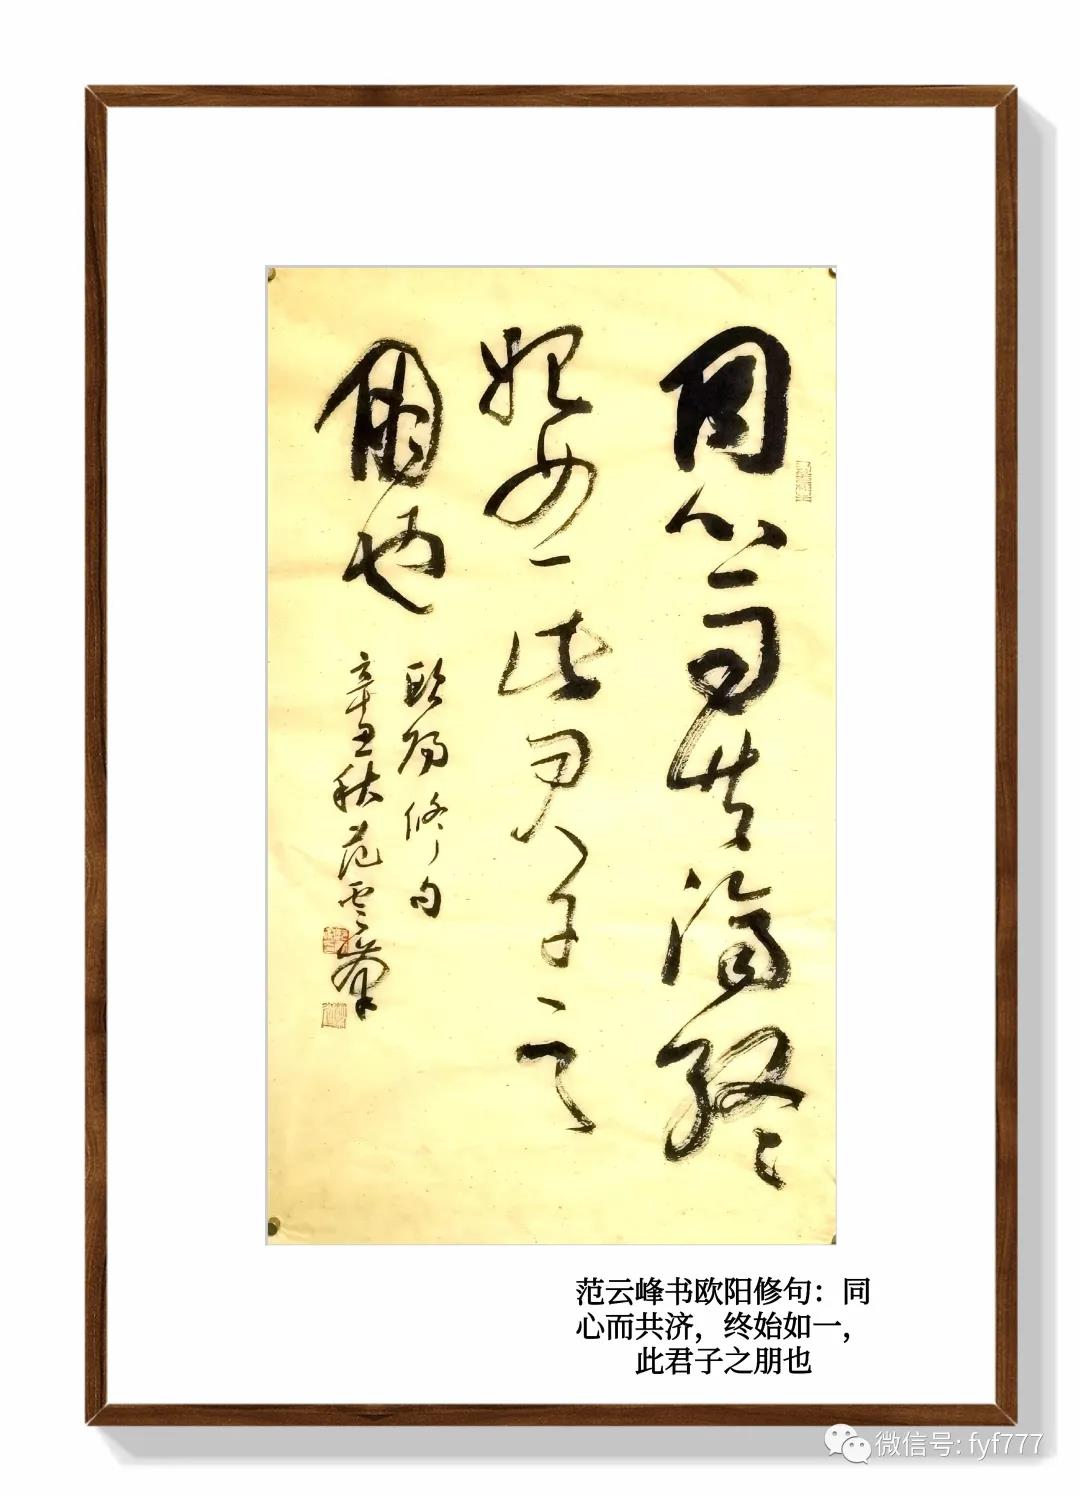 同心而共济终
始如一此君子之
朋也
欧阳修句
辛丑秋范云峯
范云峰书欧阳修句：同
心而共济，终始如一，
此君子之朋也
微信号: fyf777